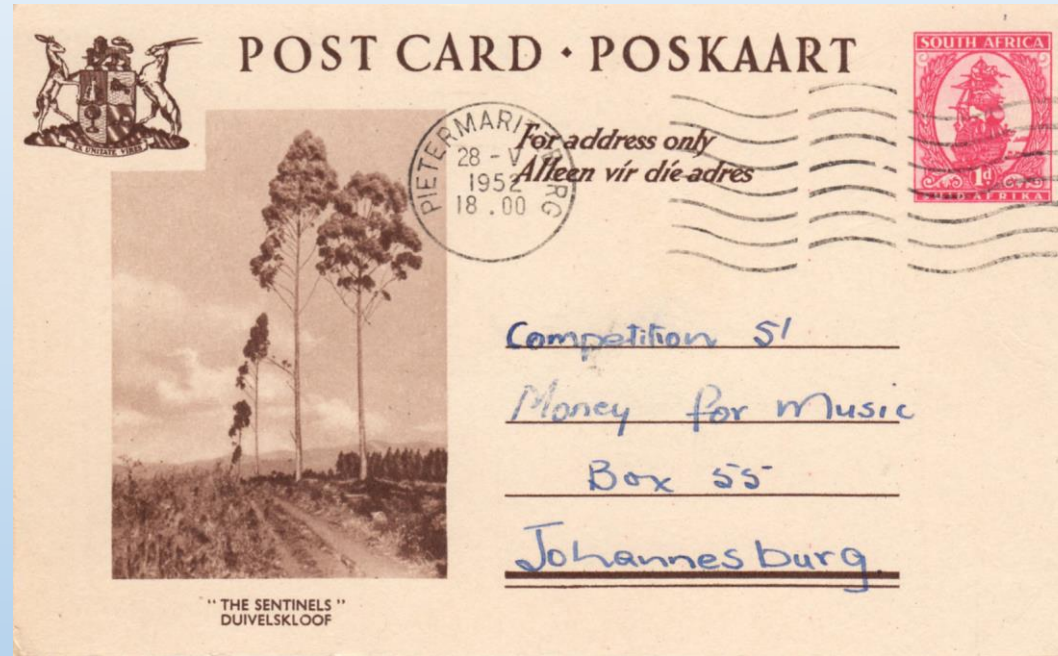 POST CARD · POSKAART
EX UNITATE VIRES
SOUTH AFRICA
1d
SUID AFRIKA
PIETERMARITZBURG
28 - V
1952
18.00
For address only
Alleen vir die adres
Competition 51
Money for Music
Box 55
Johannesburg
" THE SENTINELS "
DUIVELSKLOOF